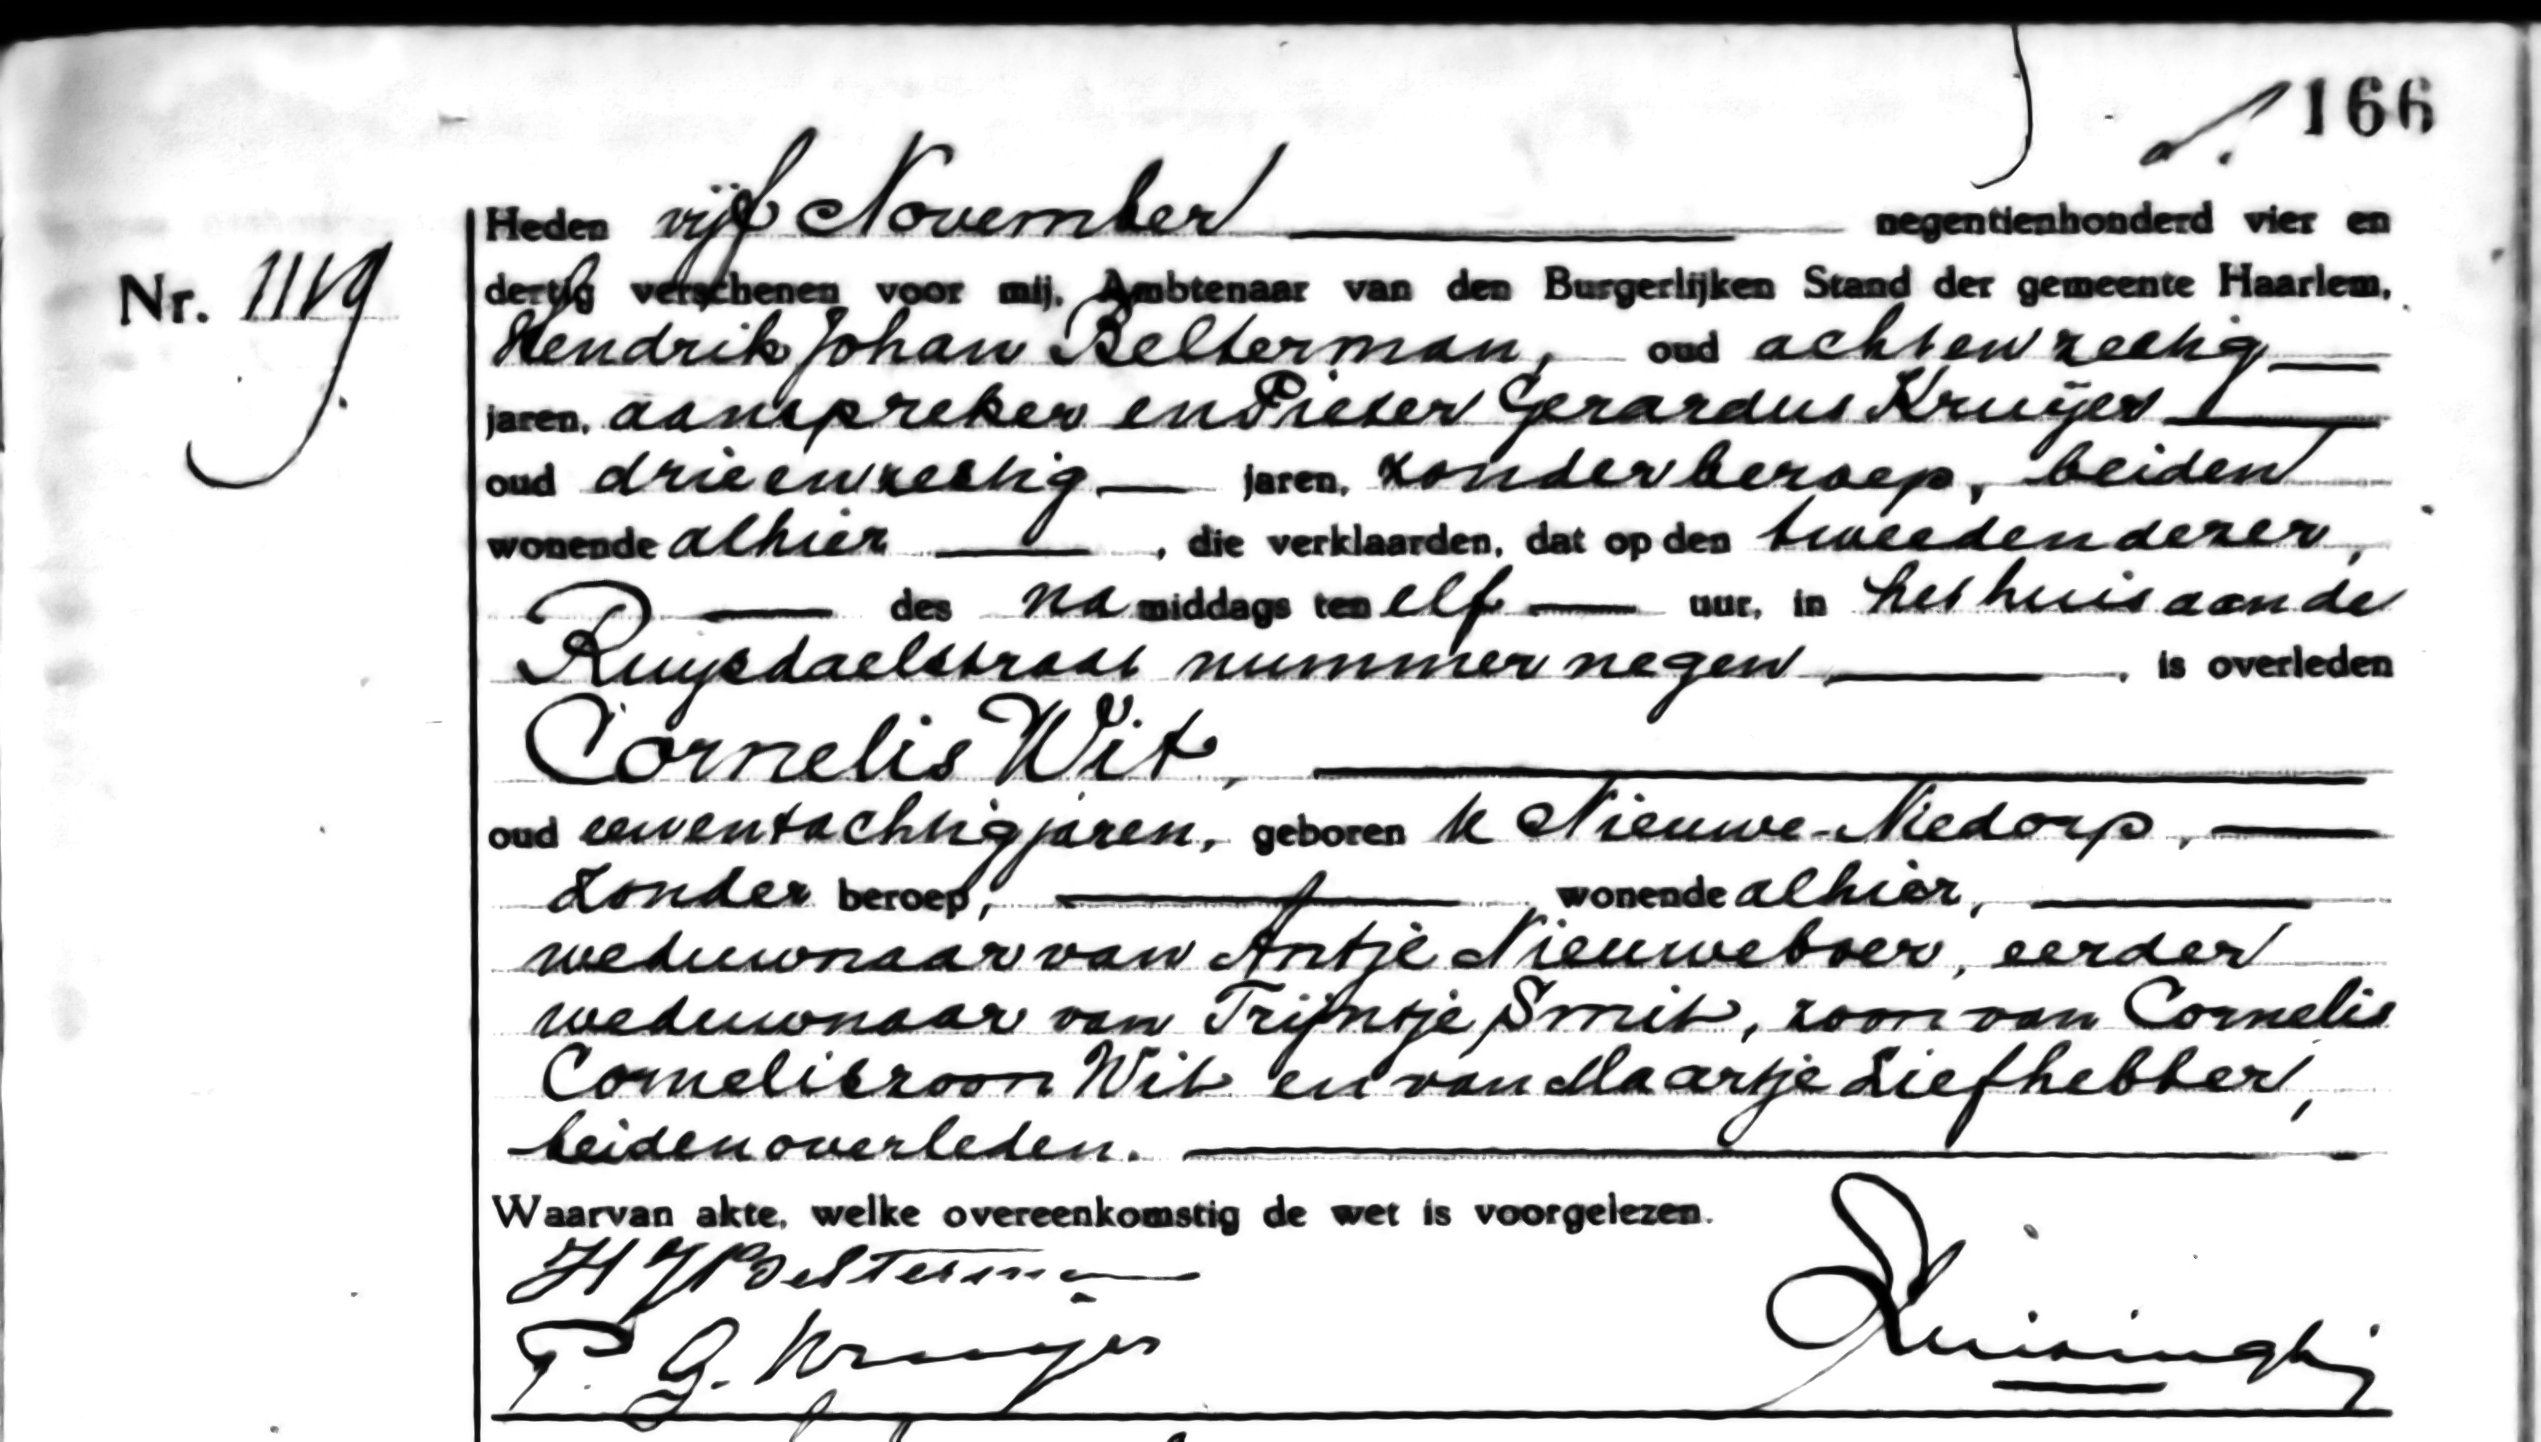 166
Heden vijf November negentienhonderd vier en
Nr. 1119
dertig verschenen voor mij, Ambtenaar van den Burgerlijken Stand der gemeente Haarlem,
Hendrik Johan Belterman, oud achtenzestig
jaren, aanspreker en Pieter Gerardus Kruijer
oud drieenzestig jaren, zonder beroep, beiden
wonende alhier, die verklaarden, dat op den tweeden dezer,
des namiddags ten elf uur, in het huis aan de
Ruysdaelstraat nummer negen, is overleden
Cornelis Wit,
oud eenentachtig jaren, geboren te Nieuwe-Niedorp,
zonder beroep, wonende alhier,
weduwnaar van Antje Nieuweboer, eerder
weduwnaar van Trijntje Smit, zoon van Cornelis
Corneliszoon Wit en van Maartje Liefhebber,
beiden overleden.
Waarvan akte, welke overeenkomstig de wet is voorgelezen.
H J Belterman
P. G. Kruijer